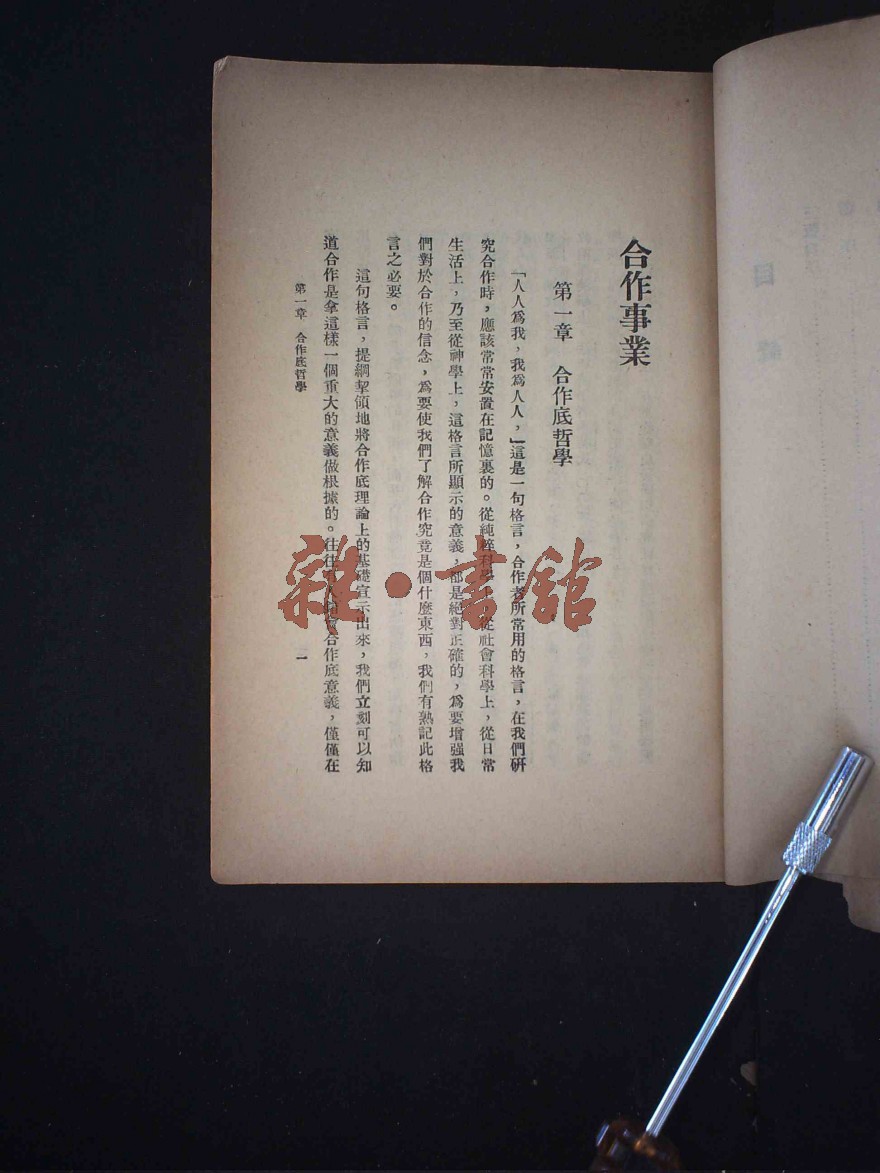 合作事業
第一章　合作底哲學
「人人爲我，我爲人人，」這是一句格言，合作者所常用的格言，在我們研
究合作時，應該常常安置在記憶裏的。從純粹科學上，從社會科學上，從日常
生活上，乃至從神學上，這格言所顯示的意義，都是絕對正確的，爲要增强我
們對於合作的信念，爲要使我們了解合作究竟是個什麼東西，我們有熟記此格
言之必要。
這句格言，提綱挈領地將合作底理論上的基礎宣示出來，我們立刻可以知
道合作是拿這樣一個重大的意義做根據的。往往有人會合作底意義，僅僅在
第一章　合作底哲學
一
雜·書館
目